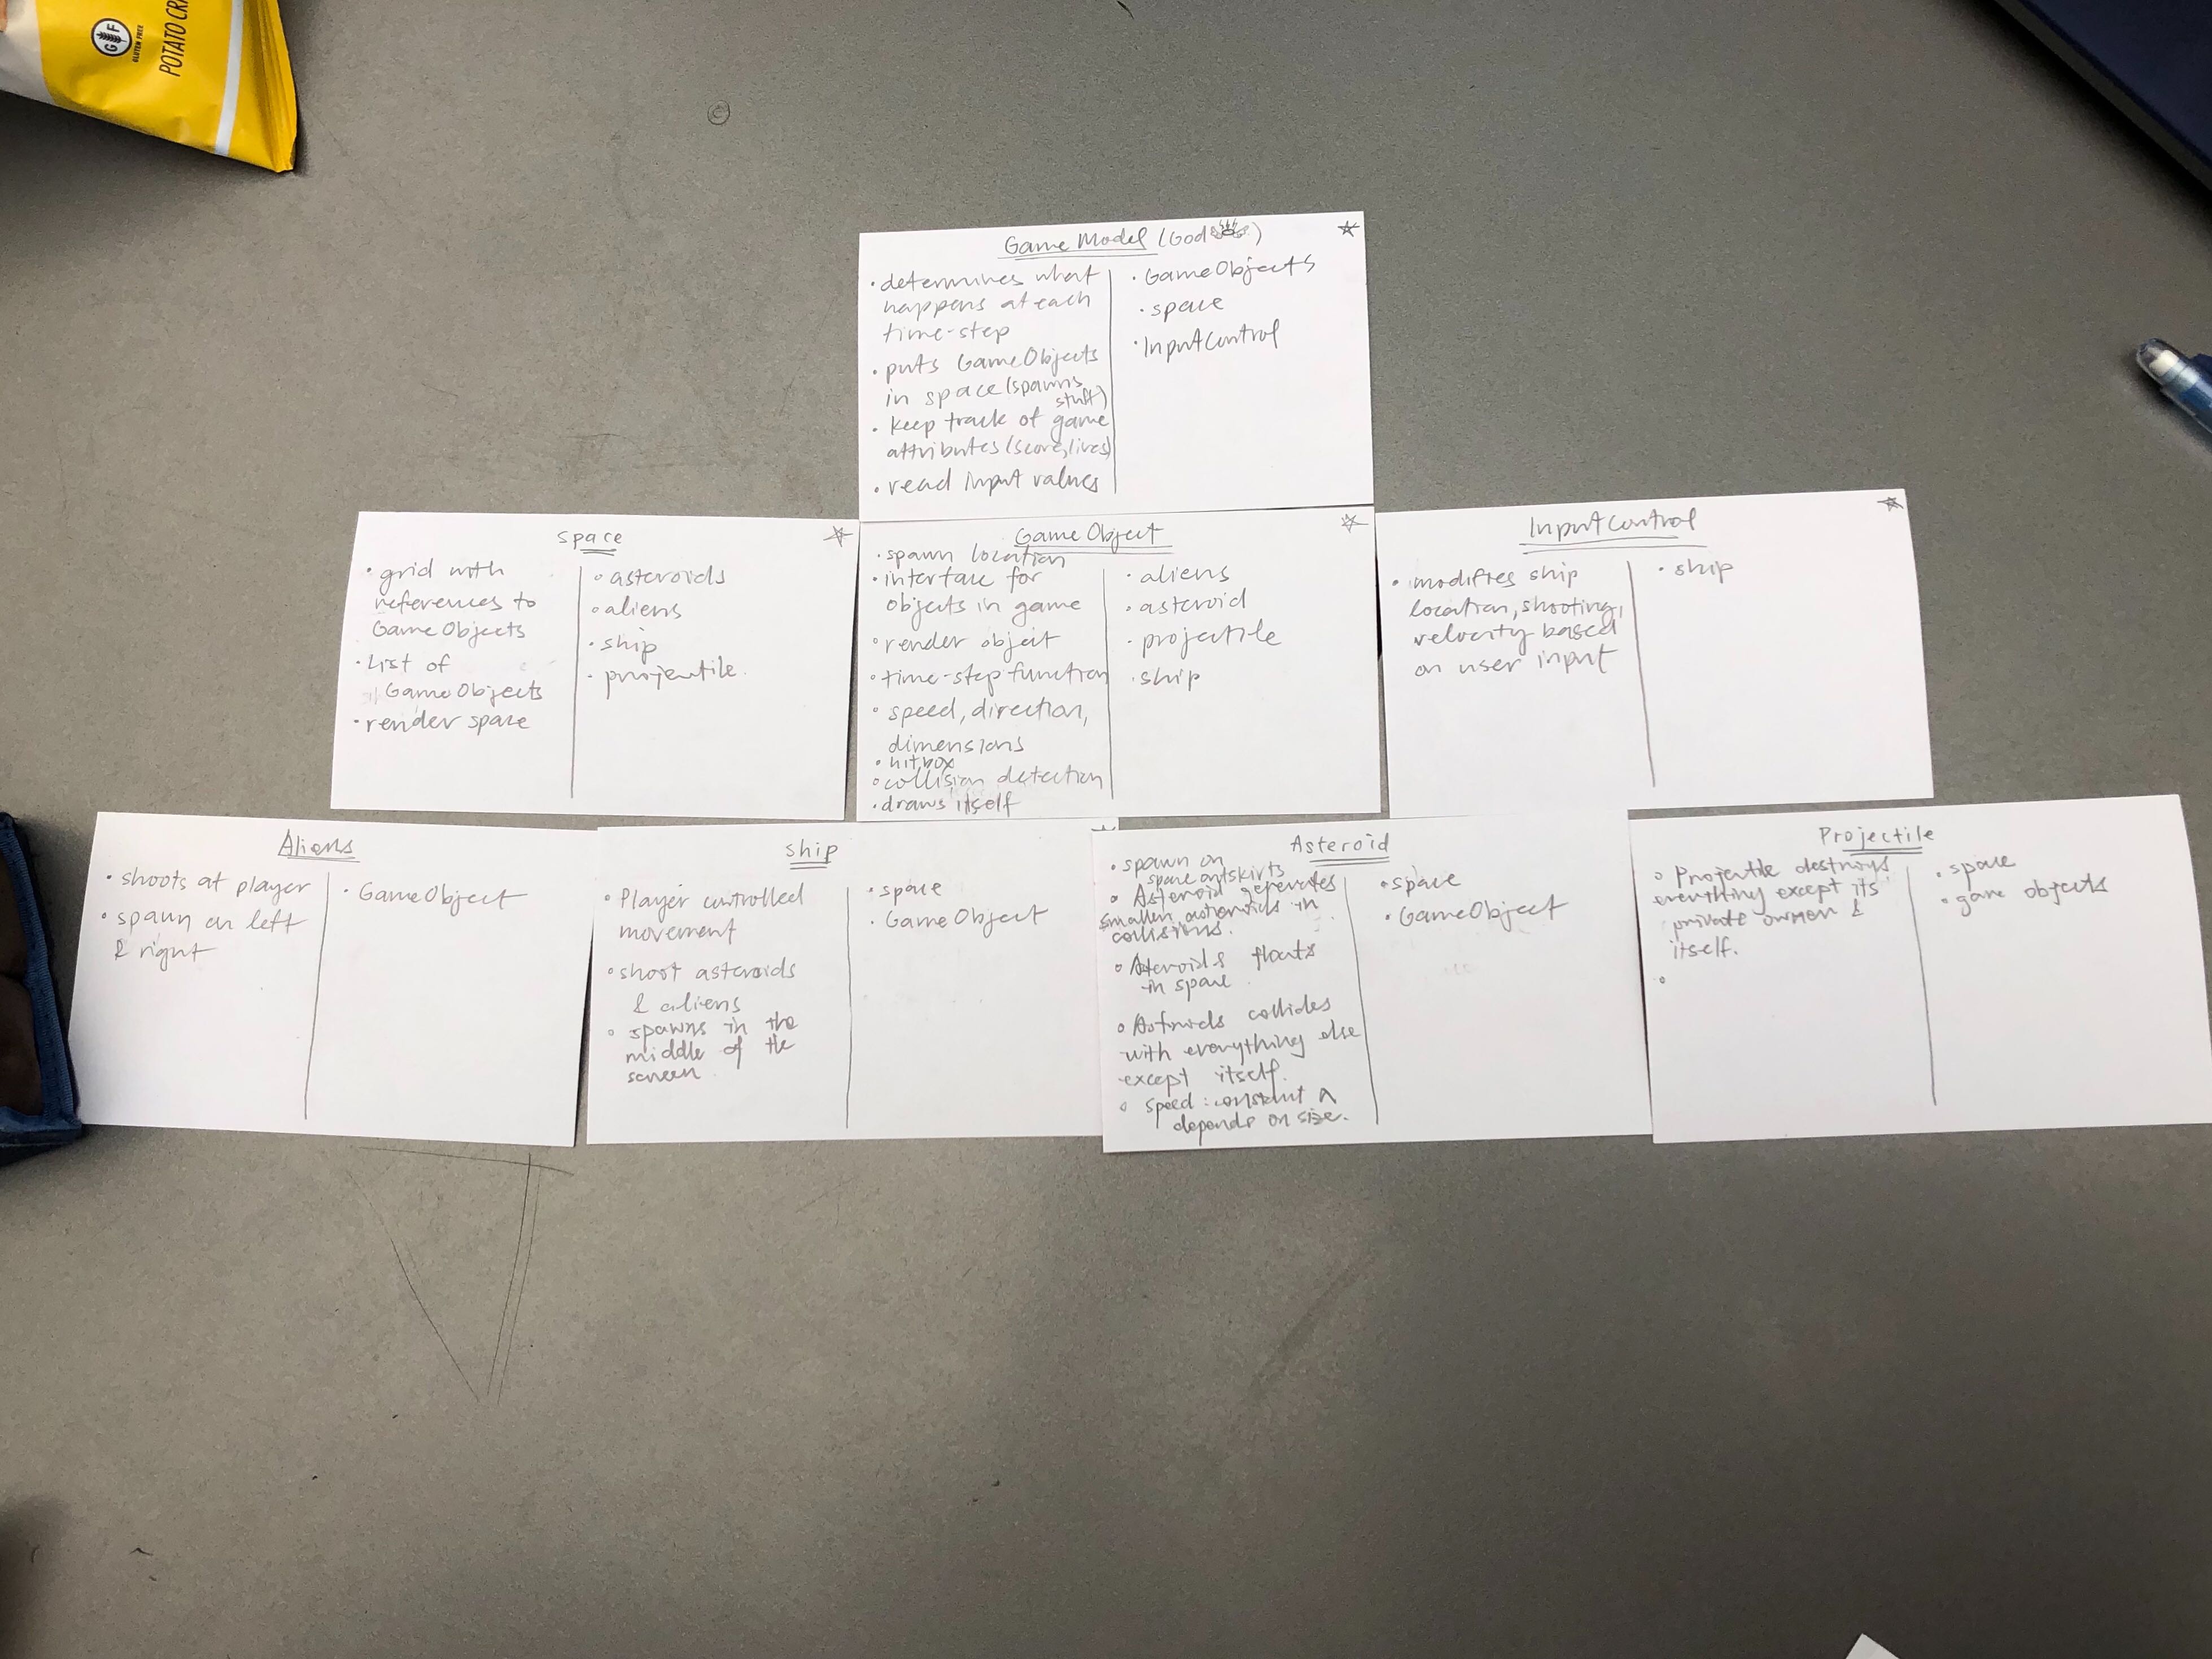 GF
GLUTEN FREE
POTATO CR
Game Model (God)
• determines what
happens at each
time-step
• puts GameObjects
in space (spawns
stuff)
• keep track of game
attributes (score, lives)
• read input values
• GameObjects
• space
• InputControl
space
• grid with
references to
GameObjects
• List of
GameObjects
• render space
• asteroids
• aliens
• ship
• projectile.
Game Object
• spawn location
• interface for
objects in game
• render object
• time-step function
• speed, direction,
dimensions
• hitbox
• collision detection
• draws itself
• aliens
• asteroid
• projectile
• ship
InputControl
• modifies ship
location, shooting,
velocity based
on user input
• ship
Aliens
• shoots at player
• spawn on left
& right
• GameObject
ship
• Player controlled
movement
• shoot asteroids
& aliens
• spawns in the
middle of the
screen.
• space
• GameObject
Asteroid
• spawn on
space outskirts
• Asteroid generates
smaller asteroids in
collisions.
• Asteroids floats
in space.
• collides
with everything else
except itself.
• speed: constant
depends on size.
• space
• GameObject
Projectile
• Projectile destroys
everything except its
private owner &
itself.
• space
• game objects